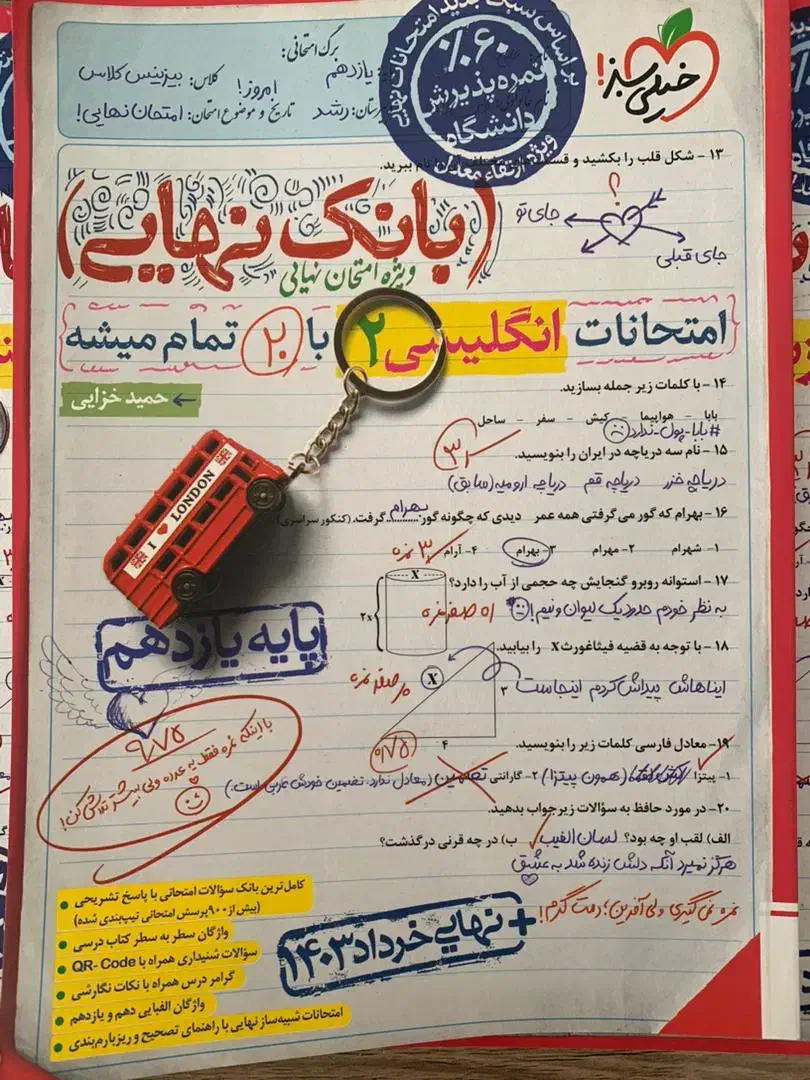 خیلی سبز!
بر اساس سبک جدید امتحانات نهایی
٪۶۰
نمره پذیرش
دانشگاه
ویژه ارتقاء معدل
برگ امتحانی:
یازدهم
کلاس: بیزینس کلاس
رشد
تاریخ و موضوع امتحان: امروز! امتحان نهایی!
۱۳ - شکل قلب را بکشید و نام ببرید.
؟
جای تو
جای قبلی
(بانک نهایی)
ویژه امتحان نهایی
{امتحانات انگلیسی ۲ با ۲۰ تمام میشه}
← حمید خزایی
۱۴ - با کلمات زیر جمله بسازید.
بابا - هواپیما - کیش - سفر - ساحل
#بابا_پول_ندارد
۱۵ - نام سه دریاچه در ایران را بنویسید.
دریاچه خزر دریاچه قم دریاچه ارومیه (سابق)
۱۶ - بهرام که گور می‌گرفتی همه عمر دیدی که چگونه گور بهرام گرفت. (کنکور سراسری)
۱- شهرام ۲- مهرام ۳- بهرام ۴- آرام
I ♥ LONDON
۱۷ - استوانه روبرو گنجایش چه حجمی از آب را دارد؟
X
۲x
به نظر خودم حدود یک لیوان و نیم!
۱۸ - با توجه به قضیه فیثاغورث X را بیابید.
ایناهاش پیداش کردم اینجاست
X
۳
۴
۰/۷۵
پایه یازدهم
۹/۷۵
با اینکه نمره فقط یه عدده ولی بیشتر تلاش کن!
۱۹- معادل فارسی کلمات زیر را بنویسید.
۱- پیتزا (همون پیتزا) ۲- گارانتی تضمین (معادل ندارد. تضمین خودش عربی است.)
۲۰- در مورد حافظ به سؤالات زیر جواب بدهید.
الف) لقب او چه بود؟ لسان الغیب ب) در چه قرنی درگذشت؟
هرگز نمیرد آنکه دلش زنده شد به عشق
نمره نمی‌گیری ولی آفرین؛ دمت گرم!
+ نهایی خرداد ۱۴۰۳
کامل‌ترین بانک سؤالات امتحانی با پاسخ تشریحی
(بیش از ۹۰۰ پرسش امتحانی تیپ‌بندی شده)
واژگان سطر به سطر کتاب درسی
سؤالات شنیداری همراه با QR-Code
گرامر درس همراه با نکات نگارشی
واژگان الفبایی دهم و یازدهم
امتحانات شبیه‌ساز نهایی با راهنمای تصحیح و ریزبارم‌بندی